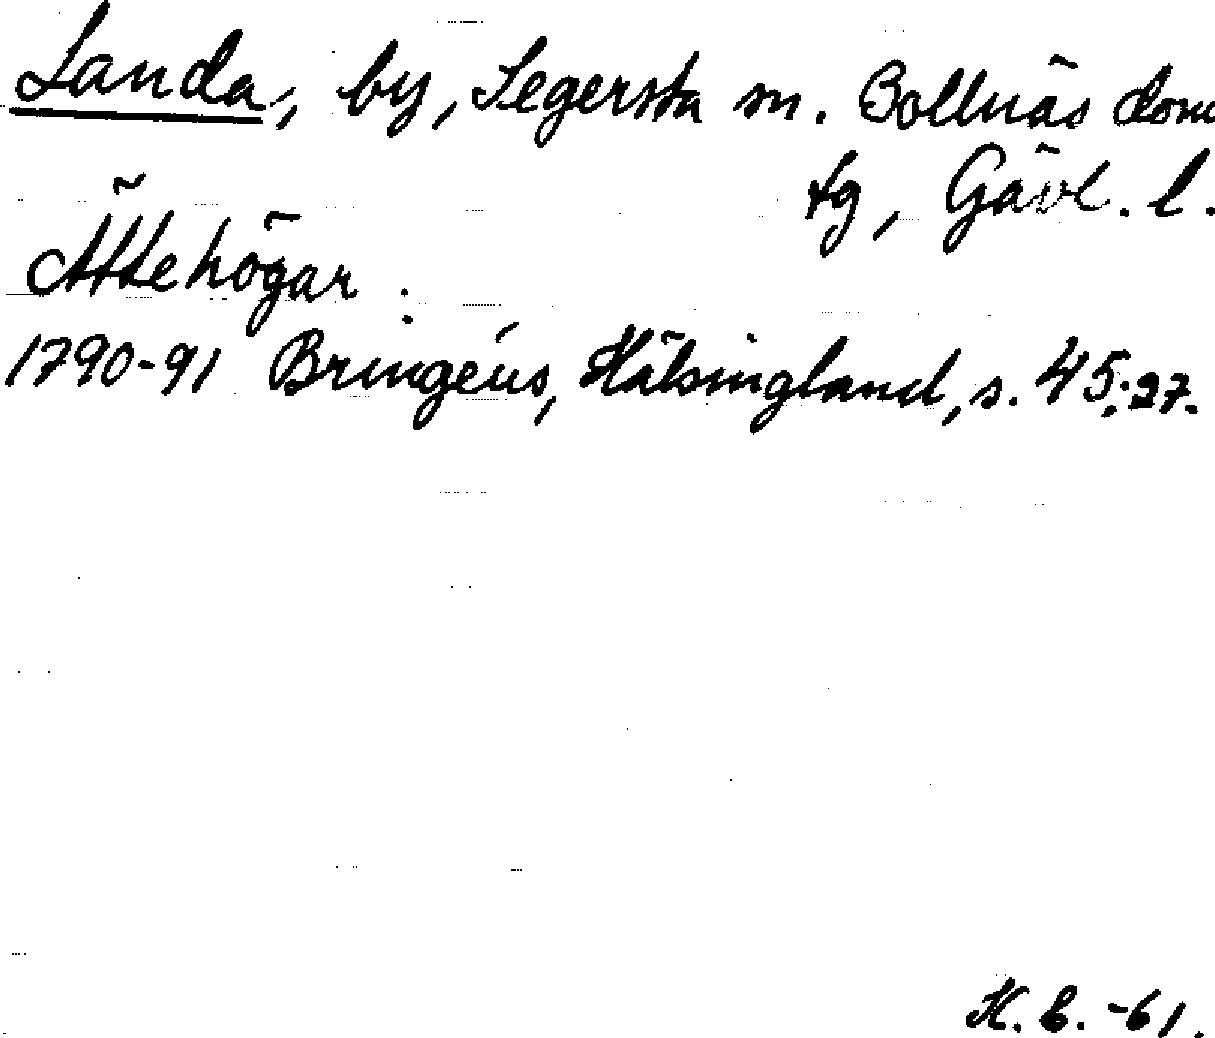 Landa, by, Segersta sn. Bollnäs doms
tg, Gävl. l.
Ättehögar:
1790-91 Bringéus, Hälsingland, s. 45:27.
K. C. -61.